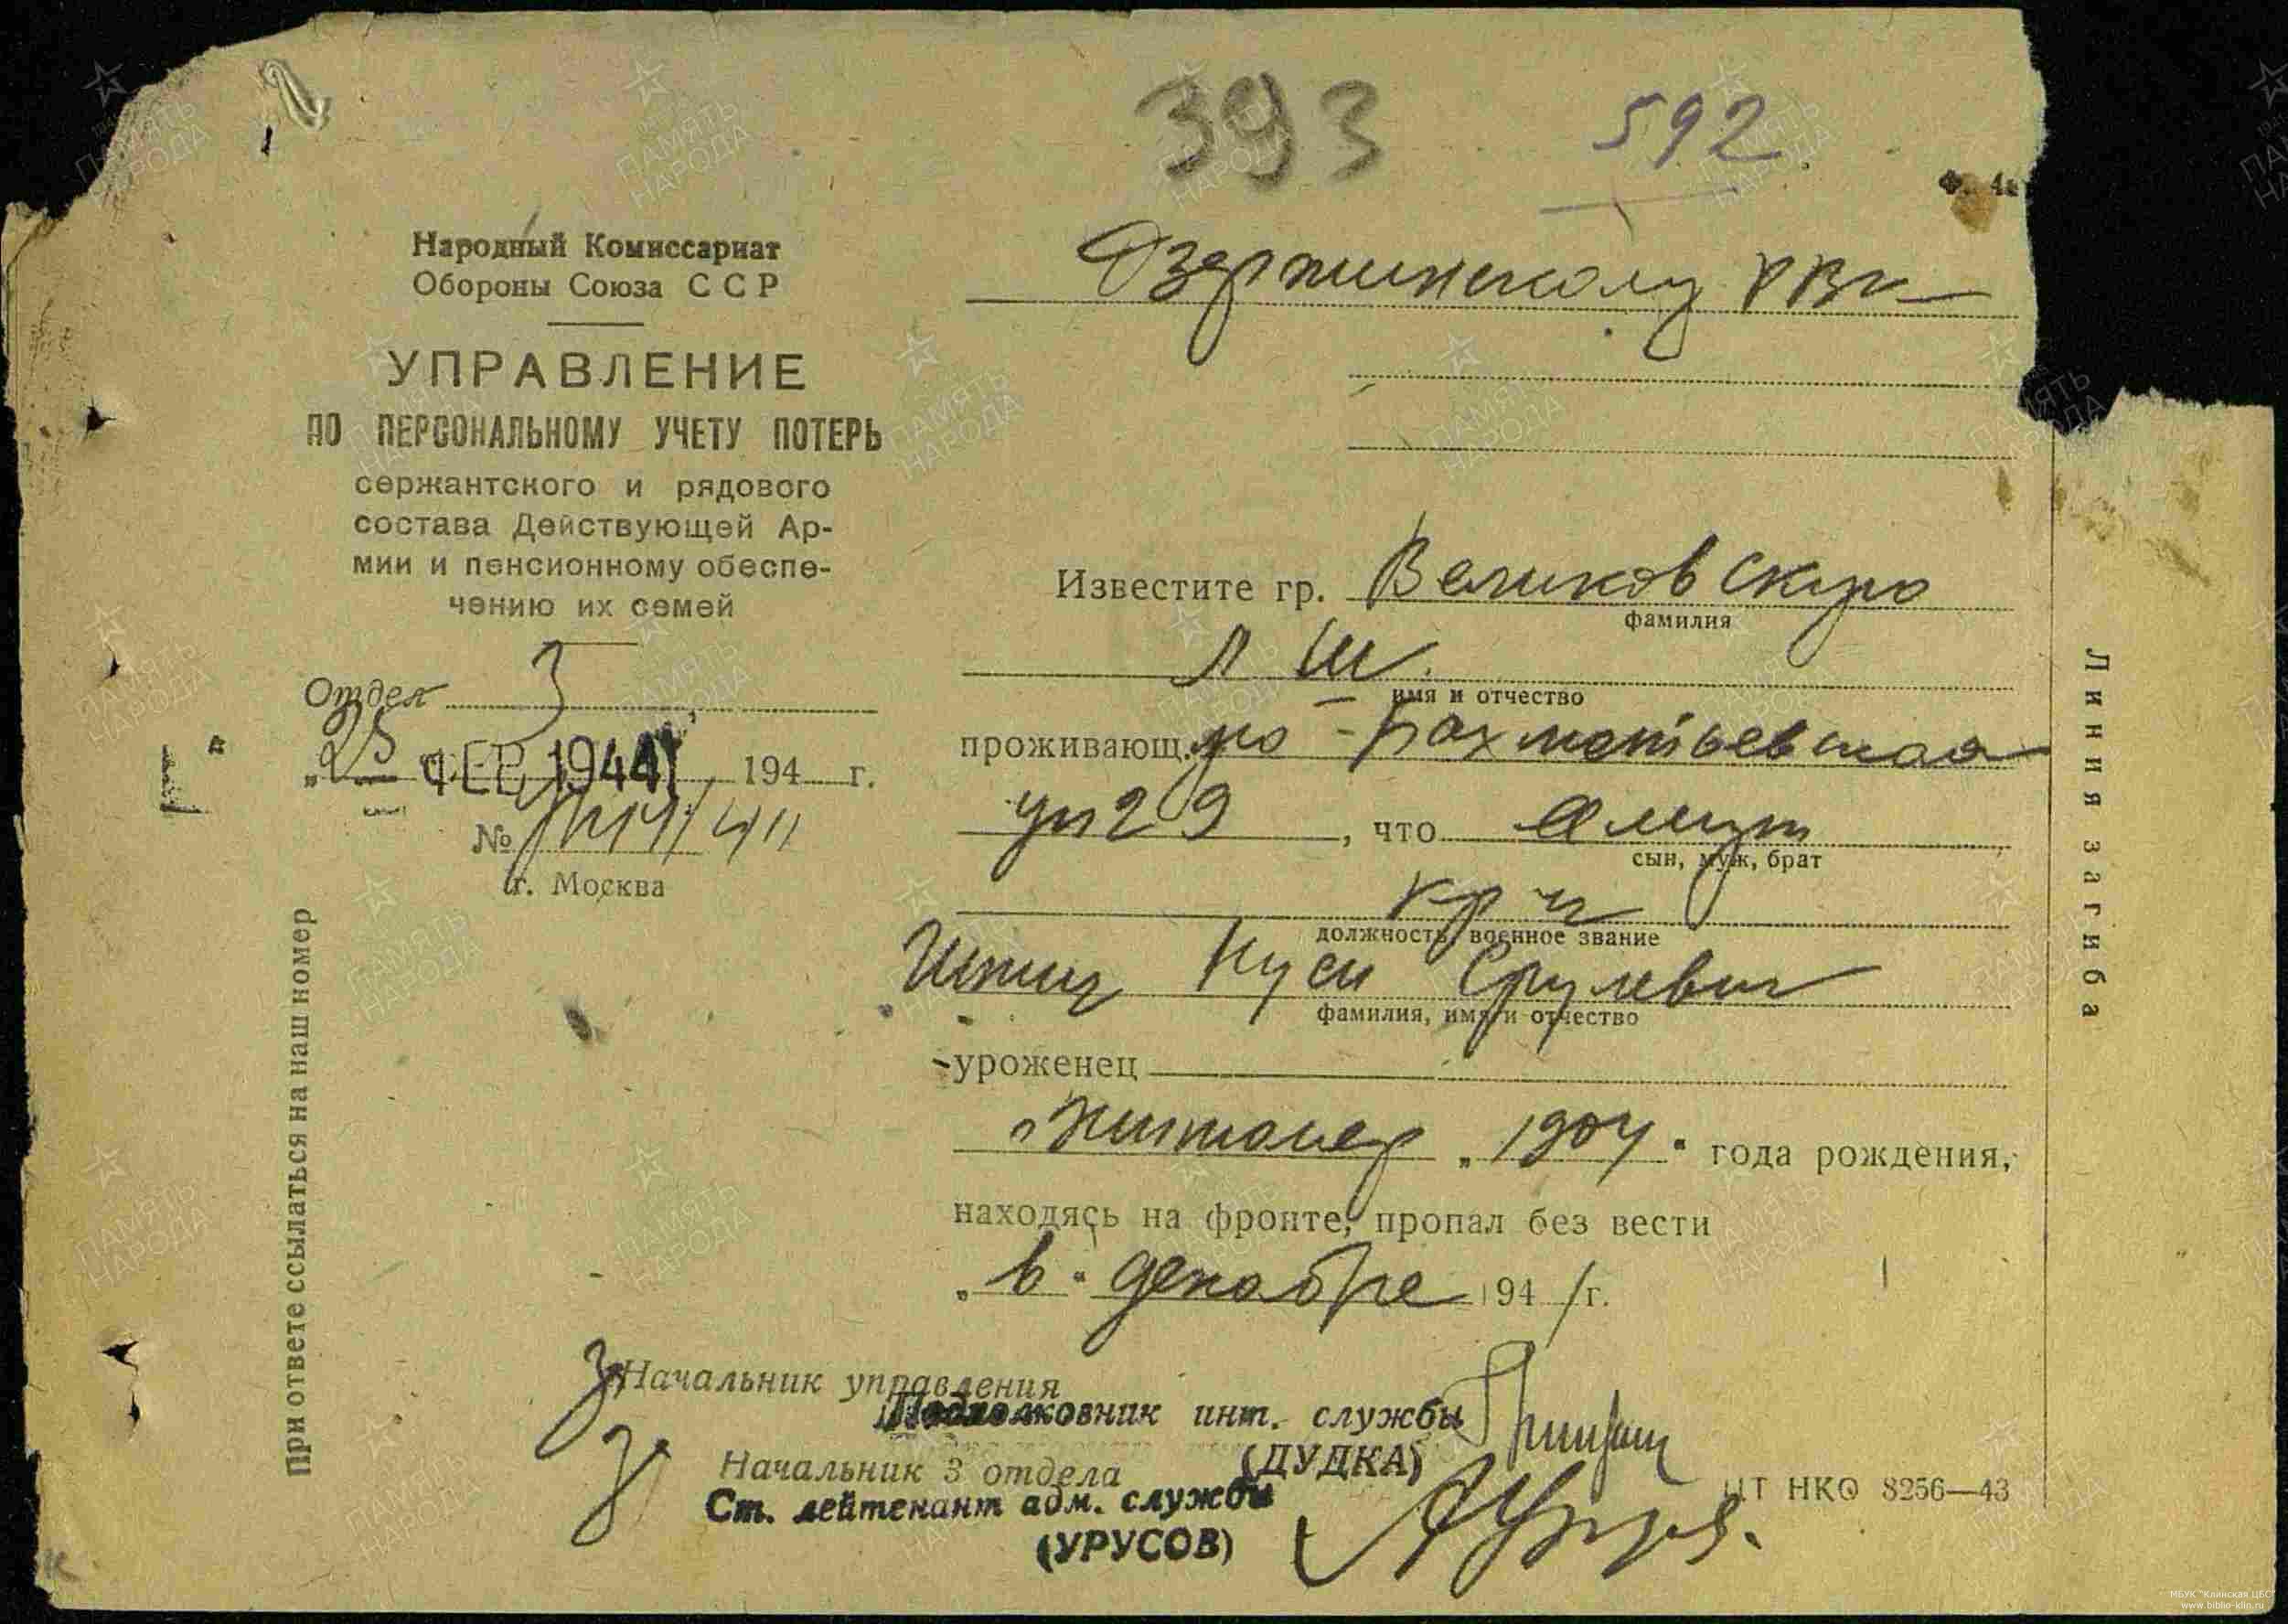 393
592
Народный Комиссариат
Обороны Союза ССР
УПРАВЛЕНИЕ
ПО ПЕРСОНАЛЬНОМУ УЧЕТУ ПОТЕРЬ
сержантского и рядового
состава Действующей Ар-
мии и пенсионному обеспе-
чению их семей
Отдел 3
„25 ФЕВ 1944 194 г.
№
г. Москва
При ответе ссылаться на наш номер
Дзержинскому РВК
Известите гр. Великовскую
фамилия
Л Ш.
имя и отчество
проживающ.ую - Бахметьевская
ул 29, что муж
сын, муж, брат
кр-ц
должность, военное звание
Куси Срулевич
фамилия, имя и отчество
уроженец
Житомер „1904" года рождения,
находясь на фронте, пропал без вести
„в" декабре 1941 г.
Начальник управления
Подполковник инт. службы
(ДУДКА)
Начальник 3 отдела
Ст. лейтенант адм. службы
(УРУСОВ)
ЦТ НКО 8256—43
Линия загиба
ПАМЯТЬ НАРОДА
МБУК "Клинская ЦБС"
www.biblio-klin.ru